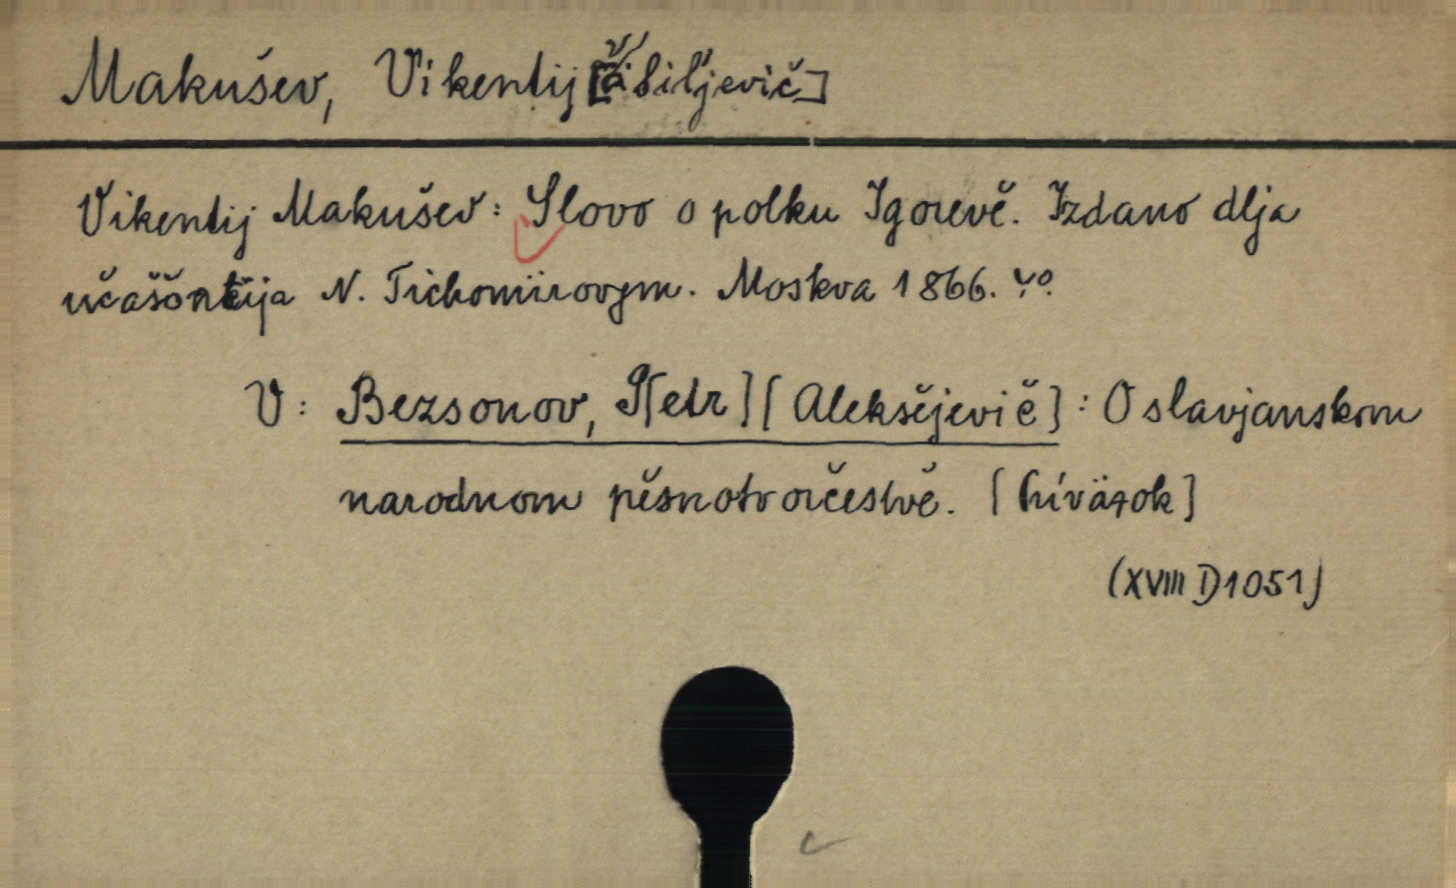 Makušev, Vikentij
Vikentij Makušev: Slovo o polku Igorevě. Izdano dlja
N. Tichomirovym. Moskva 1866. 4°.
V: Bezsonov, P[etr] [Aleksějevič]: O slavjanskom
narodnom pěsnotvorčestvě. [Príväzok]
(XVIII D 1051)